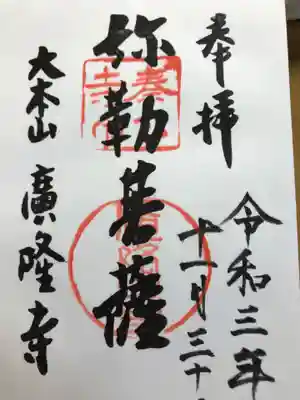 奉拝
令和三年
十一月三十日
弥勒菩薩
大本山 廣隆寺